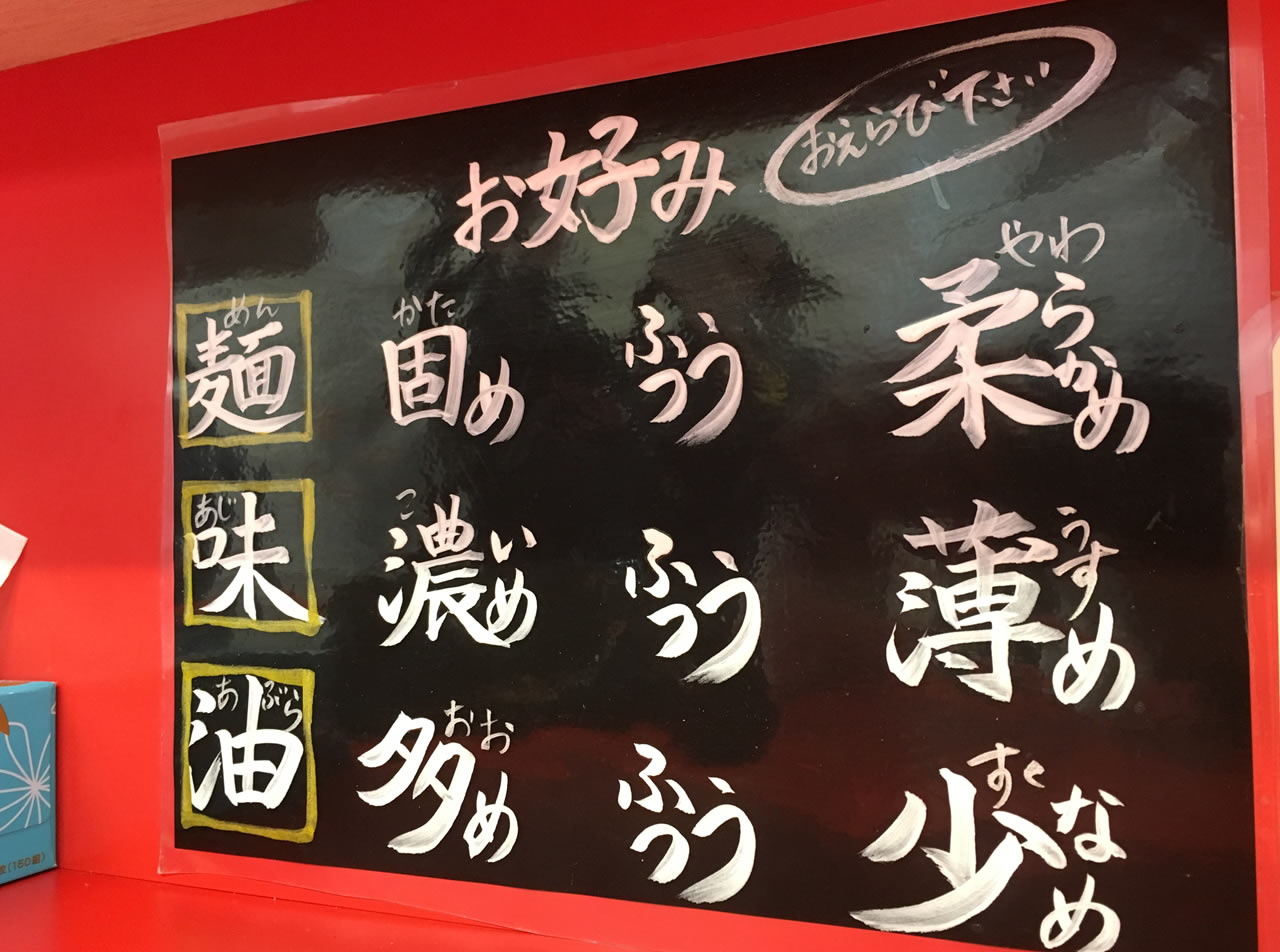 お好み おえらび下さい
めん かた やわ
麺 固め ふつう 柔らかめ
あじ こ うす
味 濃いめ ふつう 薄め
あぶら おお すく
油 多め ふつう 少なめ
(150組)